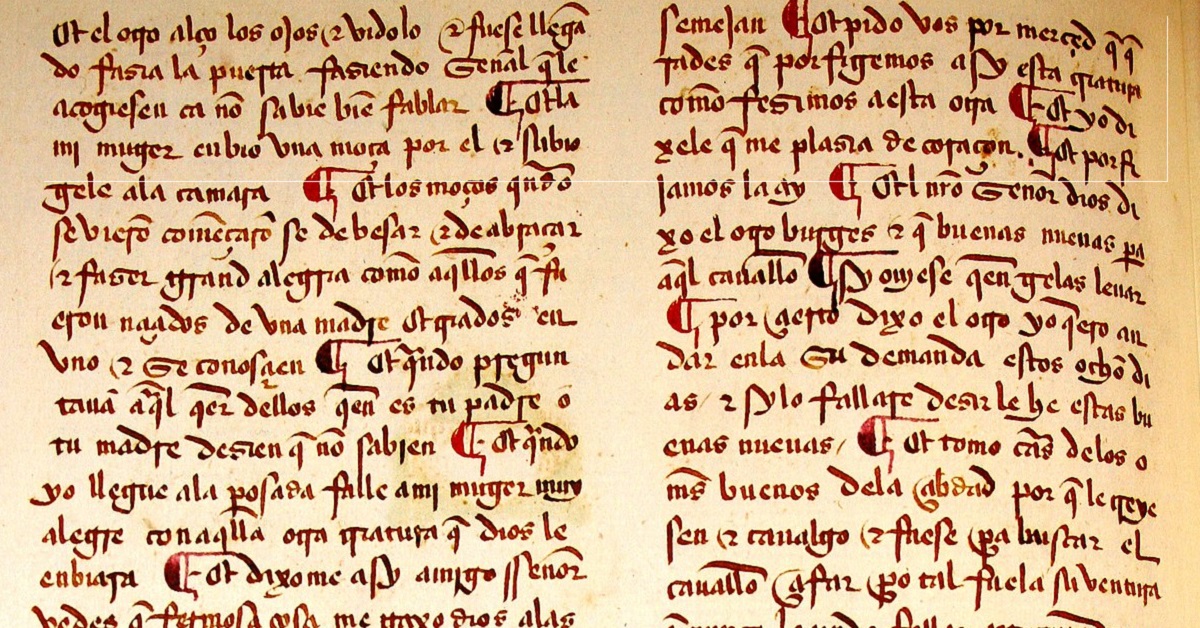 Et el oŧo alço los ojos ⁊ vidolo ⁊ fuese llegã
do fasia la puerta fasiendo señal q̃ le
acogiesen ca nõ sabie biẽ fablar ¶ Et la
mi muger enbio vna moça por el ⁊ subio
gele ala camara ¶ Et los moços qñdo
se vierõ comẽçarõ se de besar ⁊ de abraçar
⁊ faser grand alegria como aq̃llos q̃ fu
eron naçidos de vna madre et criados en
vno ⁊ se conosçien ¶ Et q̃ndo pregun
tauã a q̃l q̃er dellos q̃en es tu padre o
tu madre desien q̃ nõ sabien ¶ Et q̃ndo
yo llegue ala posada falle a mi muger muy
alegre con aq̃lla otra criatura q̃ dios le
enbiara ¶ Et dixome asy amigo señor
vedes q̃ fermosa cosa me traxo dios alas
semejan ¶ Et pido vos por merçed q̃ q̃
rades q̃ porfigemos asy esta criatura
como fesimos a esta otra ¶ Et yo di
xele q̃ me plasia de coraçon. ¶ Et porfi
jamos la asy ¶ Et nr̃o señor dios di
xo el oto burges ⁊ q̃ buenas nueuas pa
aq̃l cauallo ¶ sy ouiese q̃en gelas leuar
¶ por çierto dixo el oto yo q̃ero an
dar en la su demanda estos ocho di
as / ⁊ sy lo fallare desir le he estas bu
enas nueuas / ¶ Et tomo cãs delos o
mẽs buenos dela çibdad por q̃ le creye
sen ⁊ caualgo ⁊ fuese pa buscar el
cauallo çifar po tal fue la su ventura